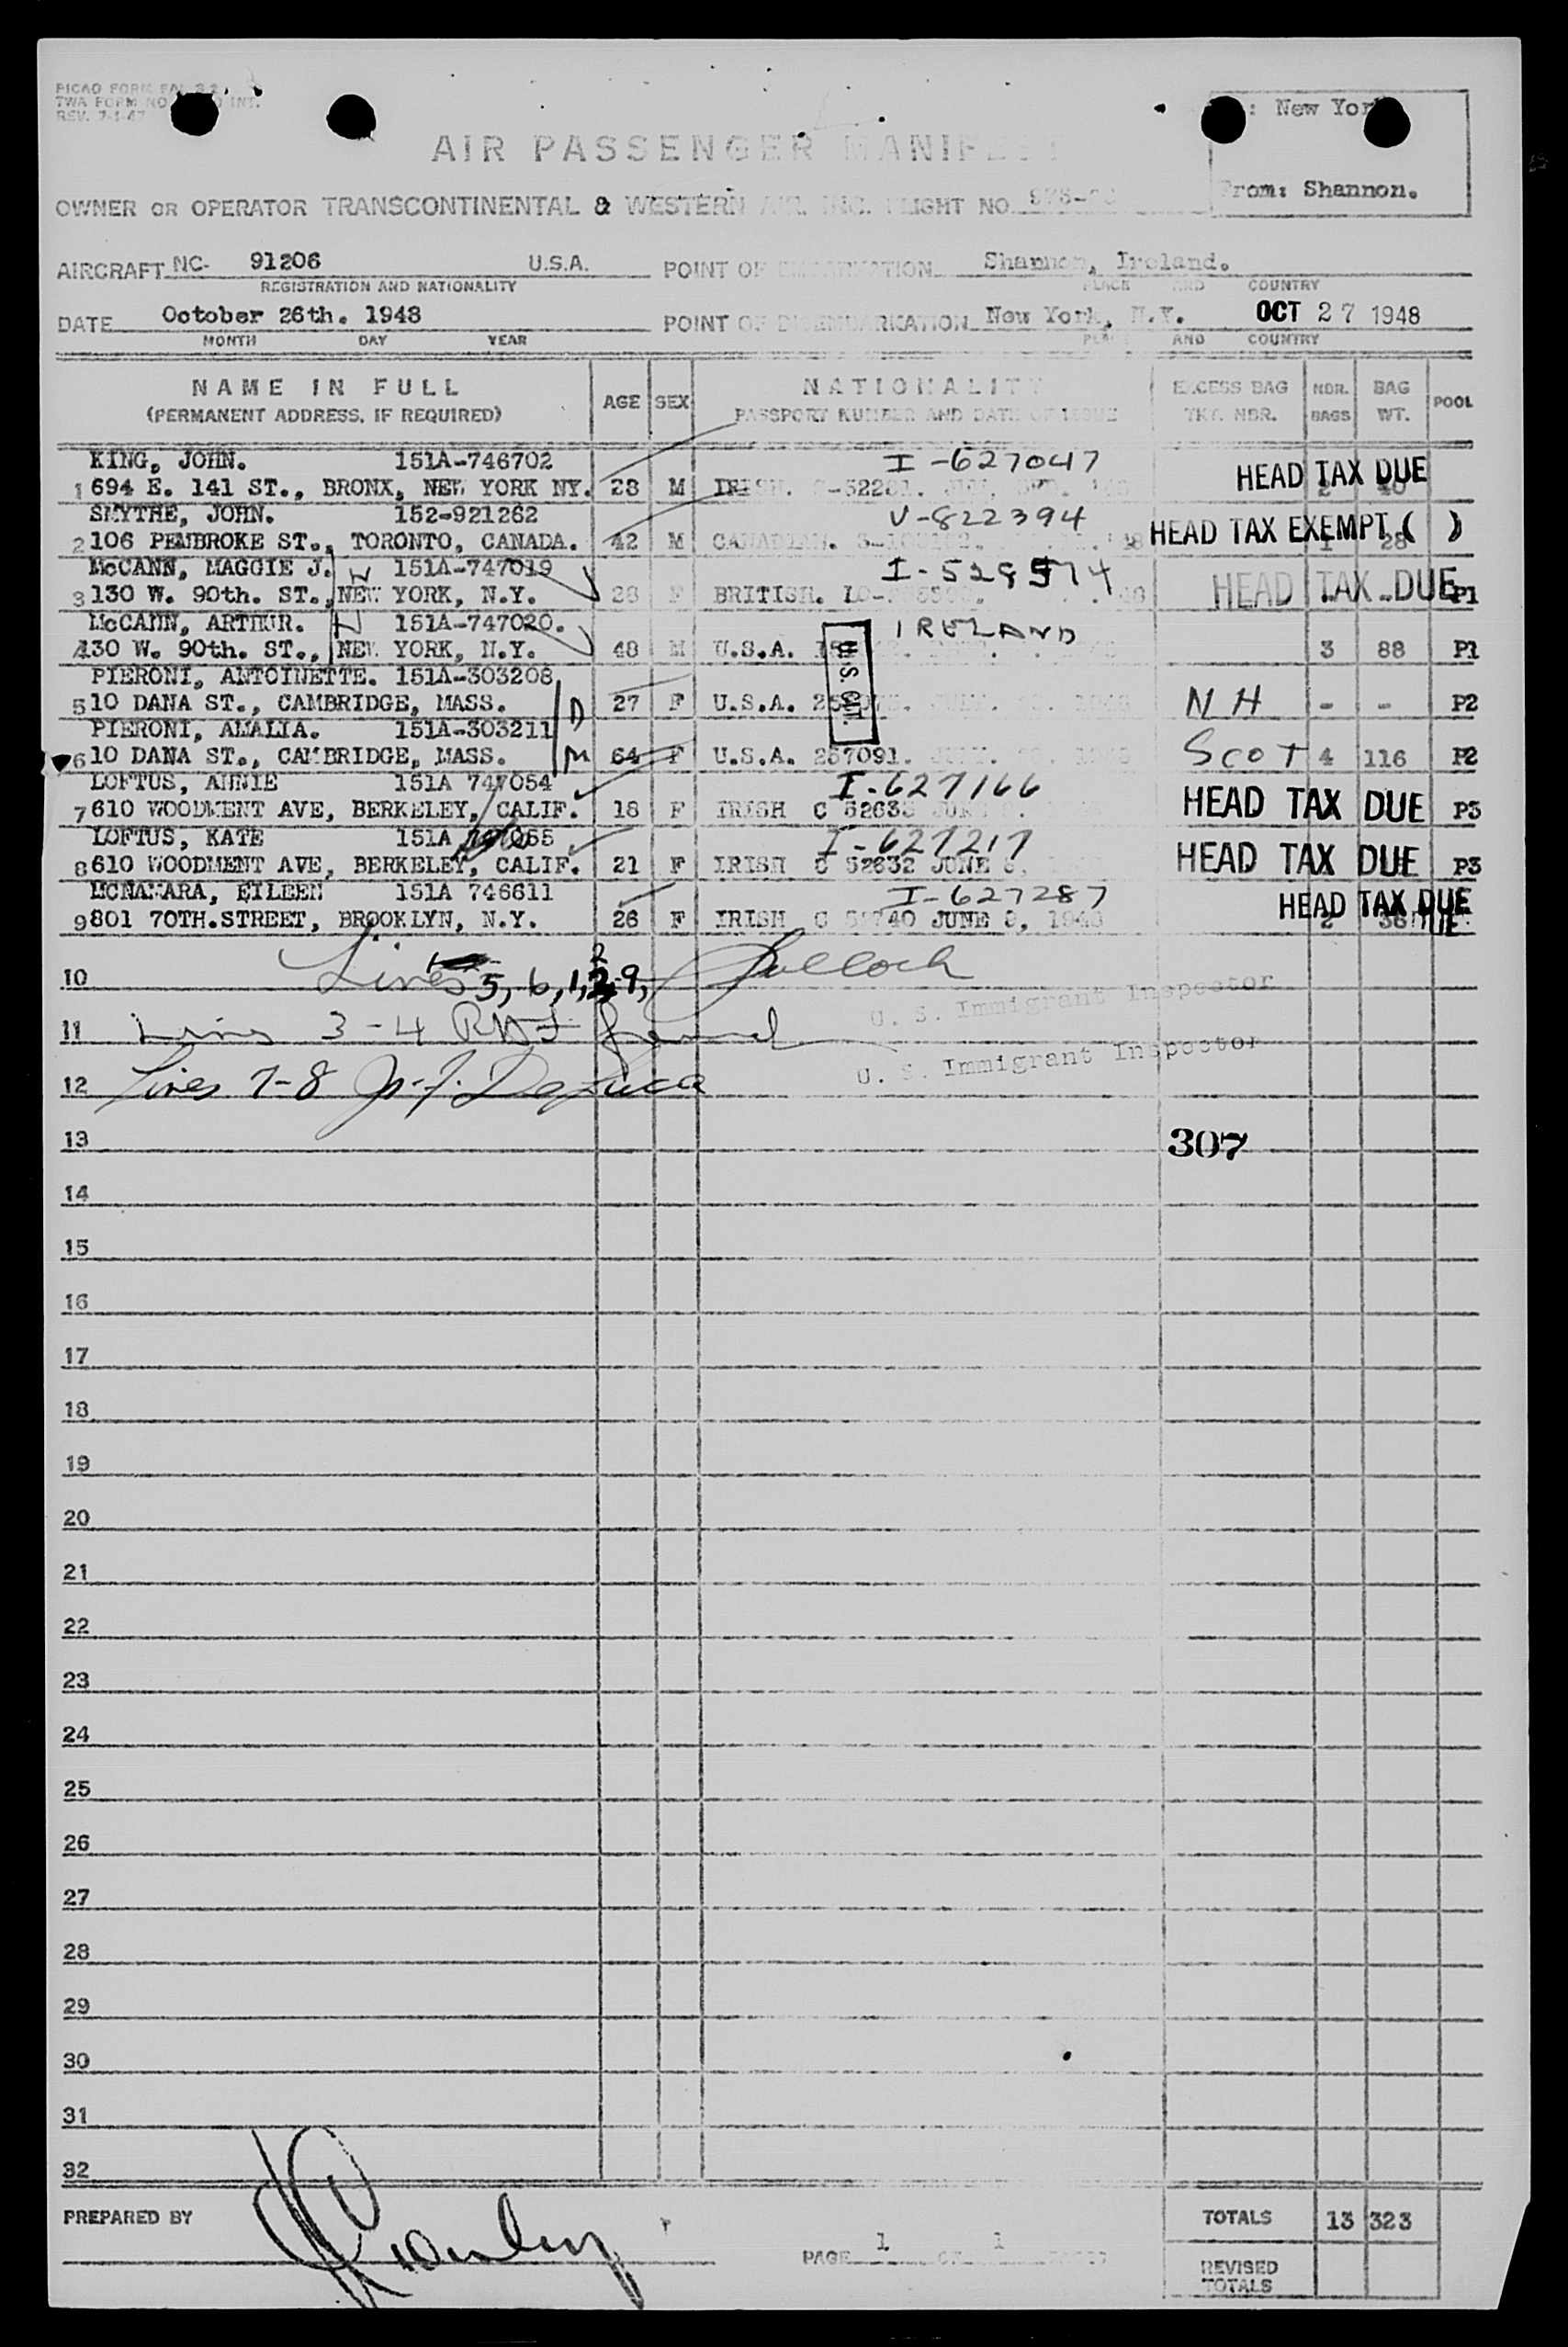 PICAO FORM
TWA FORM NO INT.
REV. 7-1-47
: New York
AIR PASSENGER MANIFEST
From: Shannon.
OWNER OR OPERATOR TRANSCONTINENTAL & WESTERN AIR, INC. FLIGHT NO.
AIRCRAFT NC- 91206 U.S.A. POINT OF EMBARKATION Shannon, Ireland.
REGISTRATION AND NATIONALITY PLACE AND COUNTRY
DATE October 26th. 1948 POINT OF DISEMBARKATION New York, N.Y. OCT 27 1948
MONTH DAY YEAR PLACE AND COUNTRY
NAME IN FULL AGE SEX NATIONALITY EXCESS BAG NBR. BAG POOL
(PERMANENT ADDRESS, IF REQUIRED) PASSPORT NUMBER AND DATE OF ISSUE TKT. NBR. BAGS WT.
KING, JOHN. 151A-746702 I-627047
1 694 E. 141 ST., BRONX, NEW YORK NY. 28 M IRISH. HEAD TAX DUE
SMYTHE, JOHN. 152-921262 V-822394
2 106 PEMBROKE ST., TORONTO, CANADA. 42 M CANADIAN. HEAD TAX EXEMPT ( ) 1 28
McCANN, MAGGIE J. 151A-747019 I-528574
3 130 W. 90th. ST., NEW YORK, N.Y. F BRITISH. HEAD TAX DUE P1
McCANN, ARTHUR. 151A-747020. IRELAND
130 W. 90th. ST., NEW YORK, N.Y. 48 M U.S.A. 3 88 P1
PIERONI, ANTOINETTE. 151A-303208. U.S. CIT.
5 10 DANA ST., CAMBRIDGE, MASS. D 27 F U.S.A. NH - - P2
PIERONI, AMALIA. 151A-303211
6 10 DANA ST., CAMBRIDGE, MASS. M 64 F U.S.A. 257091. SCOT 4 116 P2
LOFTUS, ANNIE 151A 747054 I-627166
7 610 WOODMENT AVE, BERKELEY, CALIF. 18 F IRISH C 52633 HEAD TAX DUE P3
LOFTUS, KATE 151A I-627217
8 610 WOODMENT AVE, BERKELEY, CALIF. 21 F IRISH C 52632 JUNE HEAD TAX DUE P3
MCNAMARA, EILEEN 151A 746611 I-627287
9 801 70TH.STREET, BROOKLYN, N.Y. 26 F IRISH C JUNE HEAD TAX DUE
10 Lines 5, 6, 1, 2, 9,
U. S. Immigrant Inspector
11 Lines 3-4
U. S. Immigrant Inspector
12 Lines 7-8
13 307
14
15
16
17
18
19
20
21
22
23
24
25
26
27
28
29
30
31
32
PREPARED BY TOTALS 13 323
PAGE 1 OF 1
REVISED
TOTALS